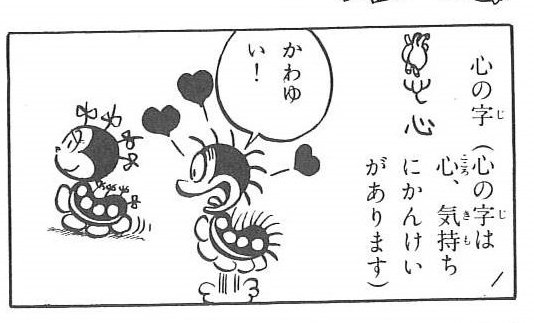 心の字(心の字は
心、気持ち
にかんけい
があります)
心
かわゆ
い!